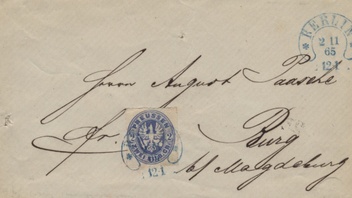 BERLIN
2 11
65
12-1
Herrn August Paasche
fr.
Burg
b/ Magdeburg
PREUSSEN
12-1